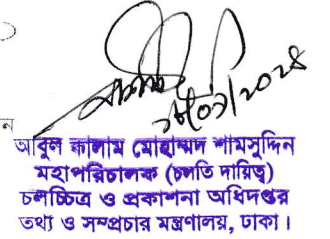 ন
আবুল কালাম মোহাম্মদ শামসুদ্দিন
মহাপরিচালক (চলতি দায়িত্ব)
চলচ্চিত্র ও প্রকাশনা অধিদপ্তর
তথ্য ও সম্প্রচার মন্ত্রণালয়, ঢাকা।